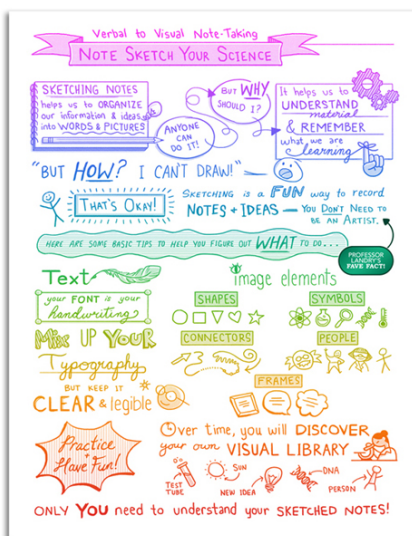 Verbal to Visual Note-Taking
NOTE SKETCH YOUR SCIENCE
SKETCHING NOTES
helps us to ORGANIZE
our information & ideas
into WORDS & PICTURES
ANYONE
CAN
DO IT!
BUT WHY
SHOULD I?
It helps us to
UNDERSTAND
material
& REMEMBER
what we are
learning
"BUT HOW? I CAN'T DRAW!"
THAT'S OKAY!
SKETCHING is a FUN way to record
NOTES + IDEAS — YOU DON'T NEED to
BE AN ARTIST.
HERE ARE SOME BASIC TIPS TO HELP YOU FIGURE OUT WHAT TO DO...
PROFESSOR
LANDRY'S
FAVE FACT!
Text
your FONT is your
handwriting
MIX UP YOUR
Typography
BUT KEEP IT
CLEAR & legible
image elements
SHAPES
SYMBOLS
CONNECTORS
PEOPLE
FRAMES
Practice
+
Have Fun!
Over time, you will DISCOVER
your own VISUAL LIBRARY
TEST
TUBE
SUN
NEW IDEA
DNA
PERSON
ONLY YOU need to understand your SKETCHED NOTES!